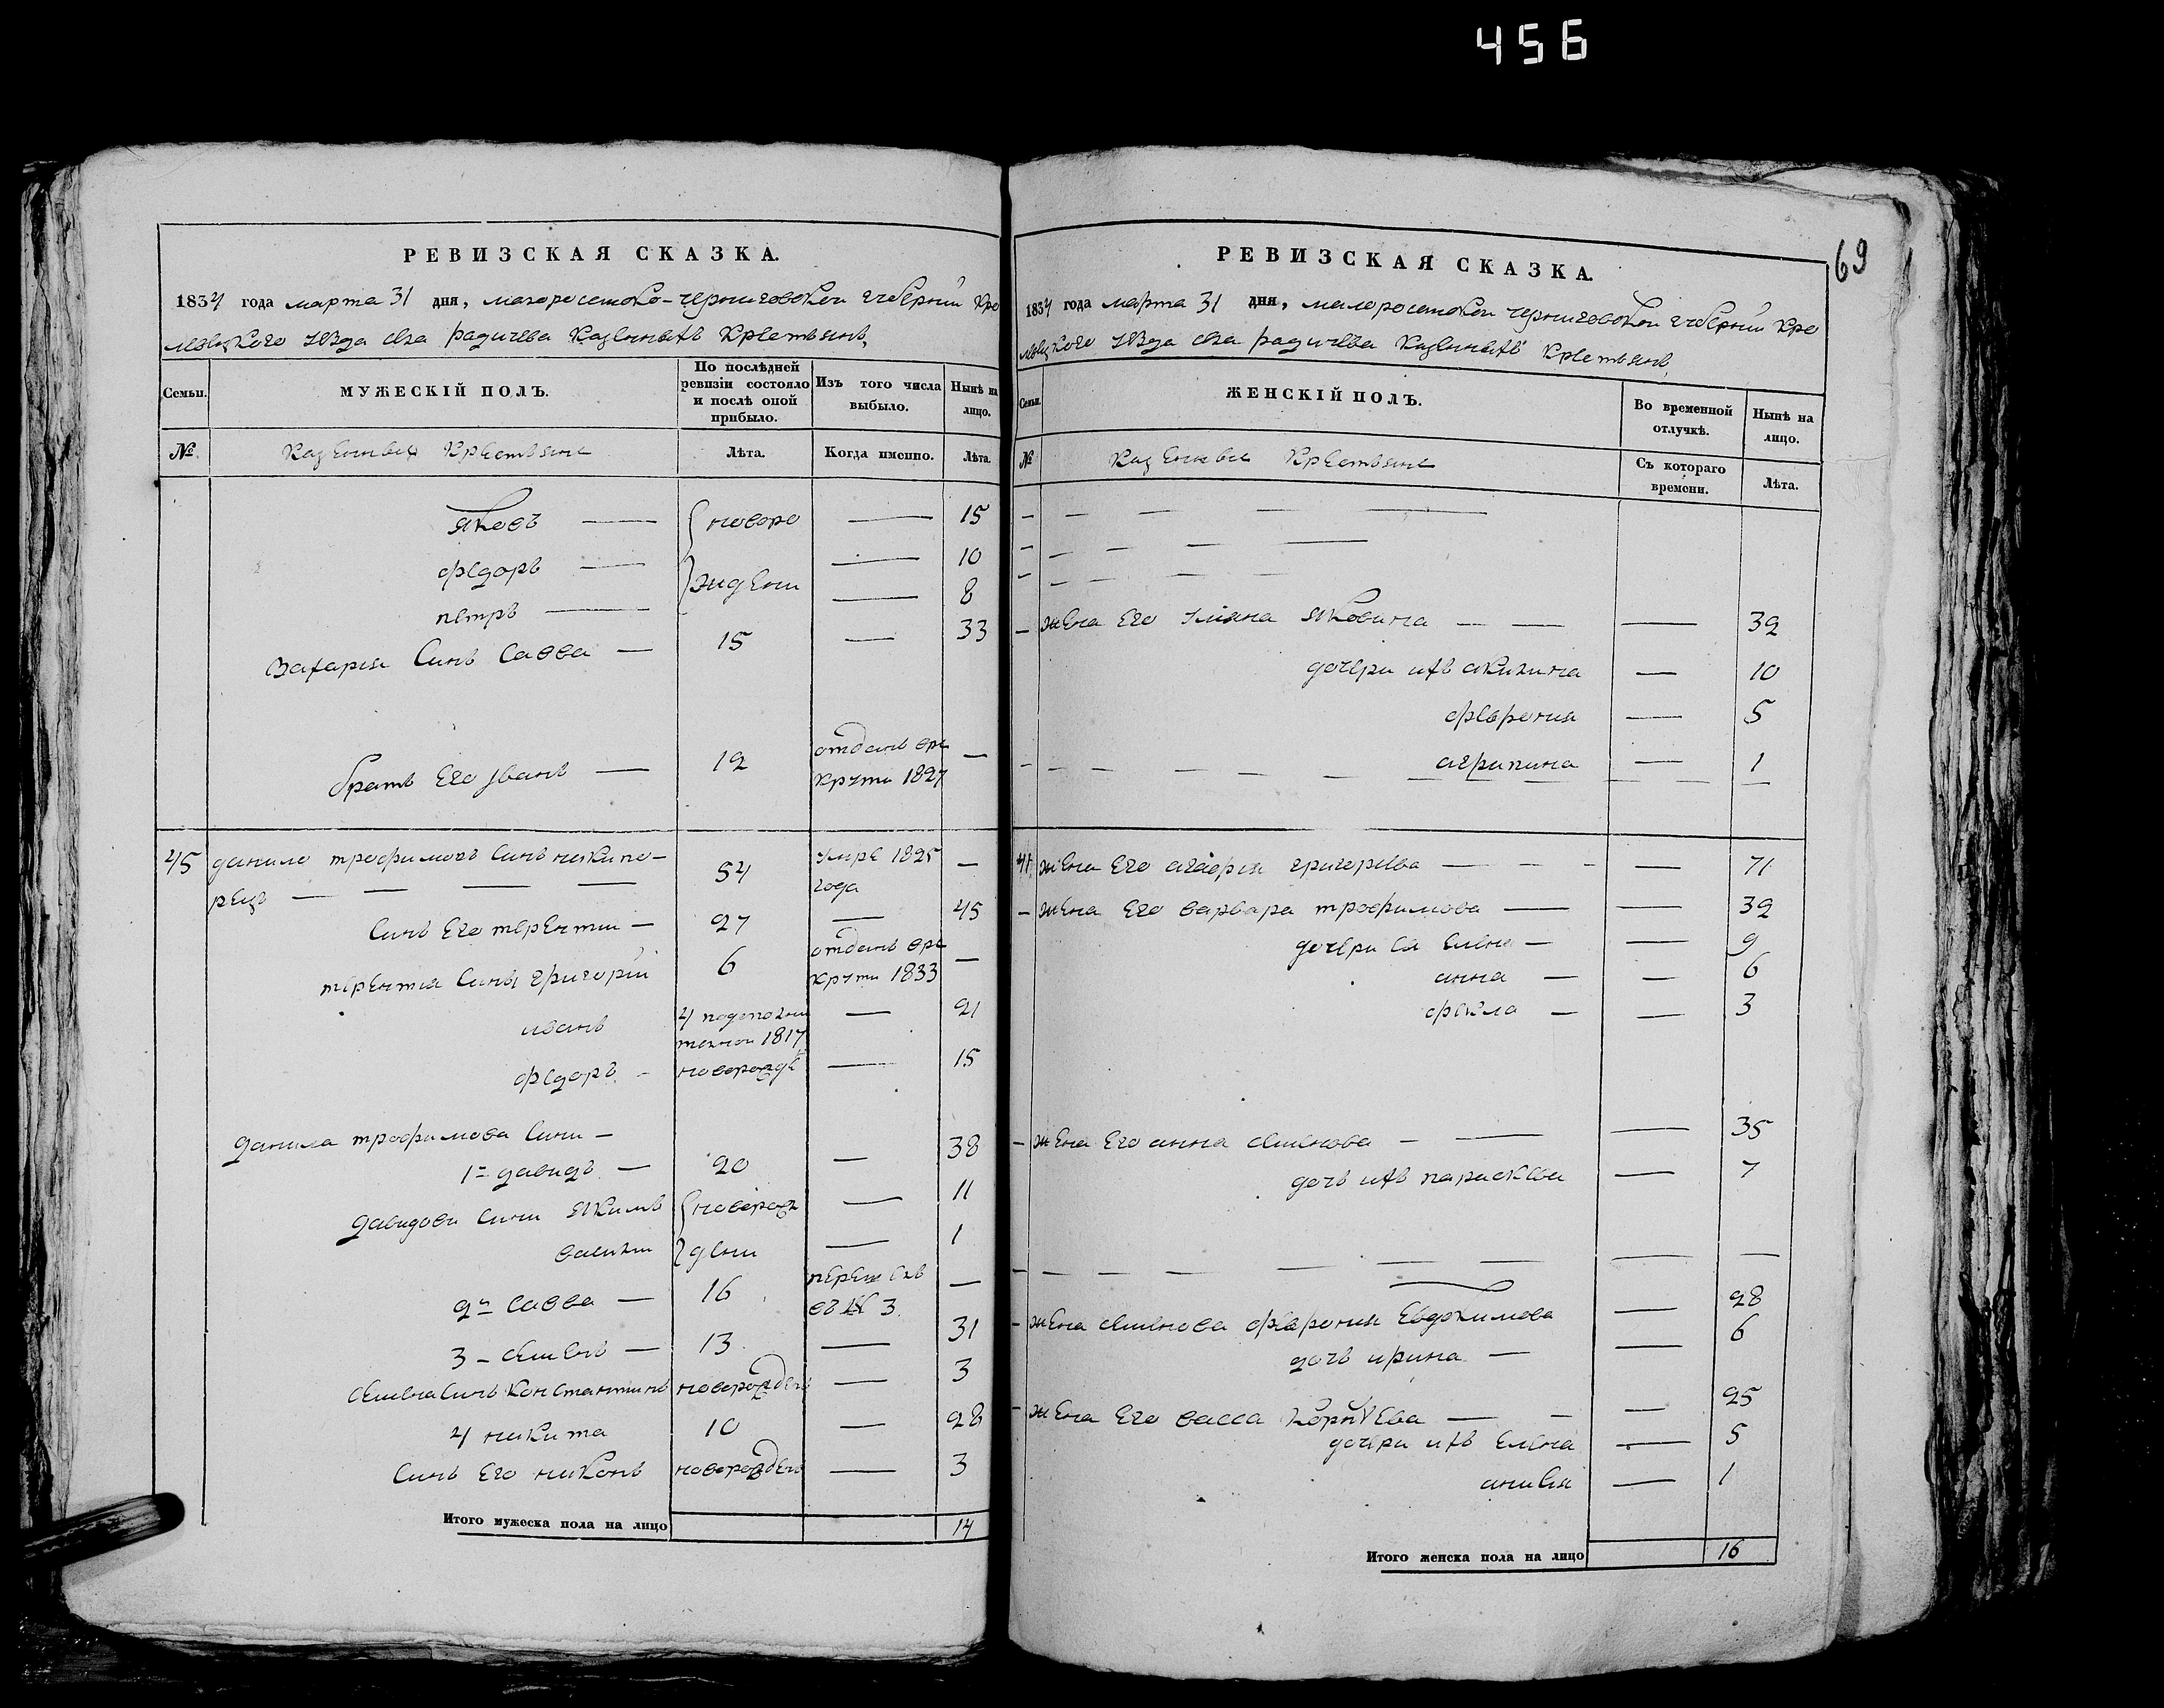 456
69
РЕВИЗСКАЯ СКАЗКА.
1834 года марта 31 дня, малоросийско-черниговской губернии Кро
левецкого уезда села радичева Казенныхъ Крестьянъ,
Семьи. МУЖЕСКІЙ ПОЛЪ. По послѣдней ревизіи состояло и послѣ оной прибыло. Изъ того числа выбыло. Нынѣ на лицо.
№ Казенныя Крестьяне Лѣта. Когда именно. Лѣта.
яковъ — новоро — 15
федоръ — — 10
петръ — жидени — 8
Захария Синъ Савва — 15 — 33
братъ Его иванъ — 12 отданъ вре —
Крути 1827
45 данило трофимовъ Синъ никипо- 54 умре 1825 —
рецъ — — — — года
Синъ Его терентии — 27 — 45
терентиа Сины григорий 6 отданъ вре —
Крути 1833
иванъ 4 — 21
1817
федоръ — 15
данила трофимова Сини —
1й давидъ — 20 — 38
давидови Сини якимъ новорож — 11
василии дени — 1
2й Савва — 16 перешелъ —
въ № 3
3 — семенъ — 13 — 31
семена Синъ Константинъ новорожденъ — 3
4 никита 10 — 28
Синъ Его никонъ новорожденъ — 3
Итого мужеска пола на лицо 14
РЕВИЗСКАЯ СКАЗКА.
1834 года марта 31 дня, малоросийской черниговской губернии Кро
левецкого уезда села радичева Казенныхъ Крестьянъ,
Семьи. ЖЕНСКІЙ ПОЛЪ. Во временной отлучкѣ. Нынѣ на лицо.
№ Казенныя Крестьяне Съ котораго времени. Лѣта.
— жена Его улияна яковлна — — — 32
дочери ихъ акилина — 10
феврония — 5
агрипина — 1
45 жена Его агафия григорева — — — 71
— жена Его варвара трофимова — — 32
дочери Ея Елена — — 9
анна — — 6
фекла — — 3
— жена Его анна семенова — — — 35
дочъ ихъ парасквы — 7
— жена семенова феврония Евдокимова — 28
дочъ ирина — — 6
— жена Его васса Корнеева — — — 25
дочери ихъ Елена — 5
— 1
Итого женска пола на лицо 16